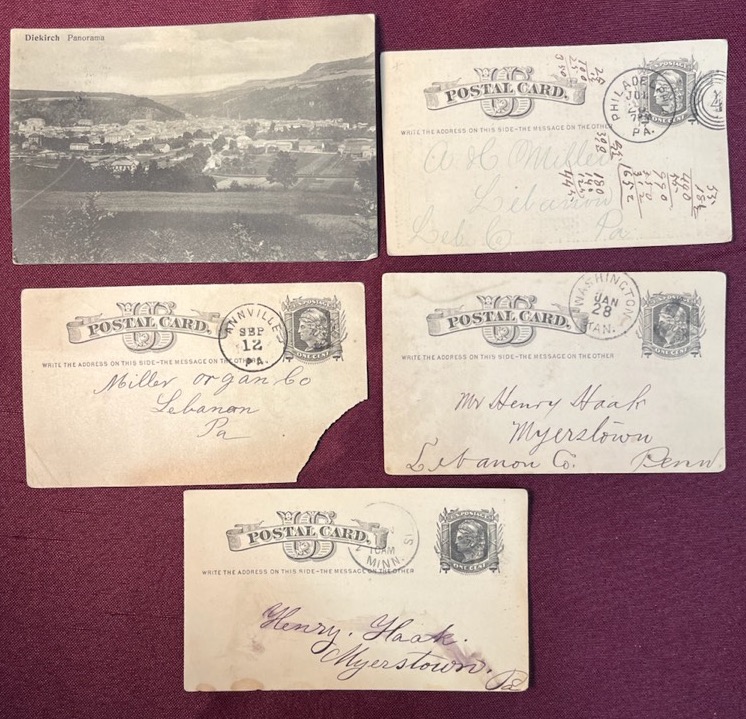 Diekirch Panorama
US
POSTAL CARD.
WRITE THE ADDRESS ON THIS SIDE-THE MESSAGE ON THE OTHER
POSTAGE
ONE CENT
PHILADE
PA.
A & C O Miller
Lebanon
Leb. Co Pa
US
POSTAL CARD.
WRITE THE ADDRESS ON THIS SIDE-THE MESSAGE ON THE OTHER
U.S. POSTAGE
ONE CENT
ANNVILLE
SEP
12
PA.
Miller Organ Co
Lebanon
Pa
US
POSTAL CARD.
WRITE THE ADDRESS ON THIS SIDE-THE MESSAGE ON THE OTHER
U.S. POSTAGE
ONE CENT
WASHINGTON,
JAN
28
KAN.
Mr Henry Haak
Myerstown
Lebanon Co. Penn
US
POSTAL CARD.
WRITE THE ADDRESS ON THIS SIDE-THE MESSAGE ON THE OTHER
U.S. POSTAGE
ONE CENT
10AM
MINN.
Henry. Haak.
Myerstown.
Pa